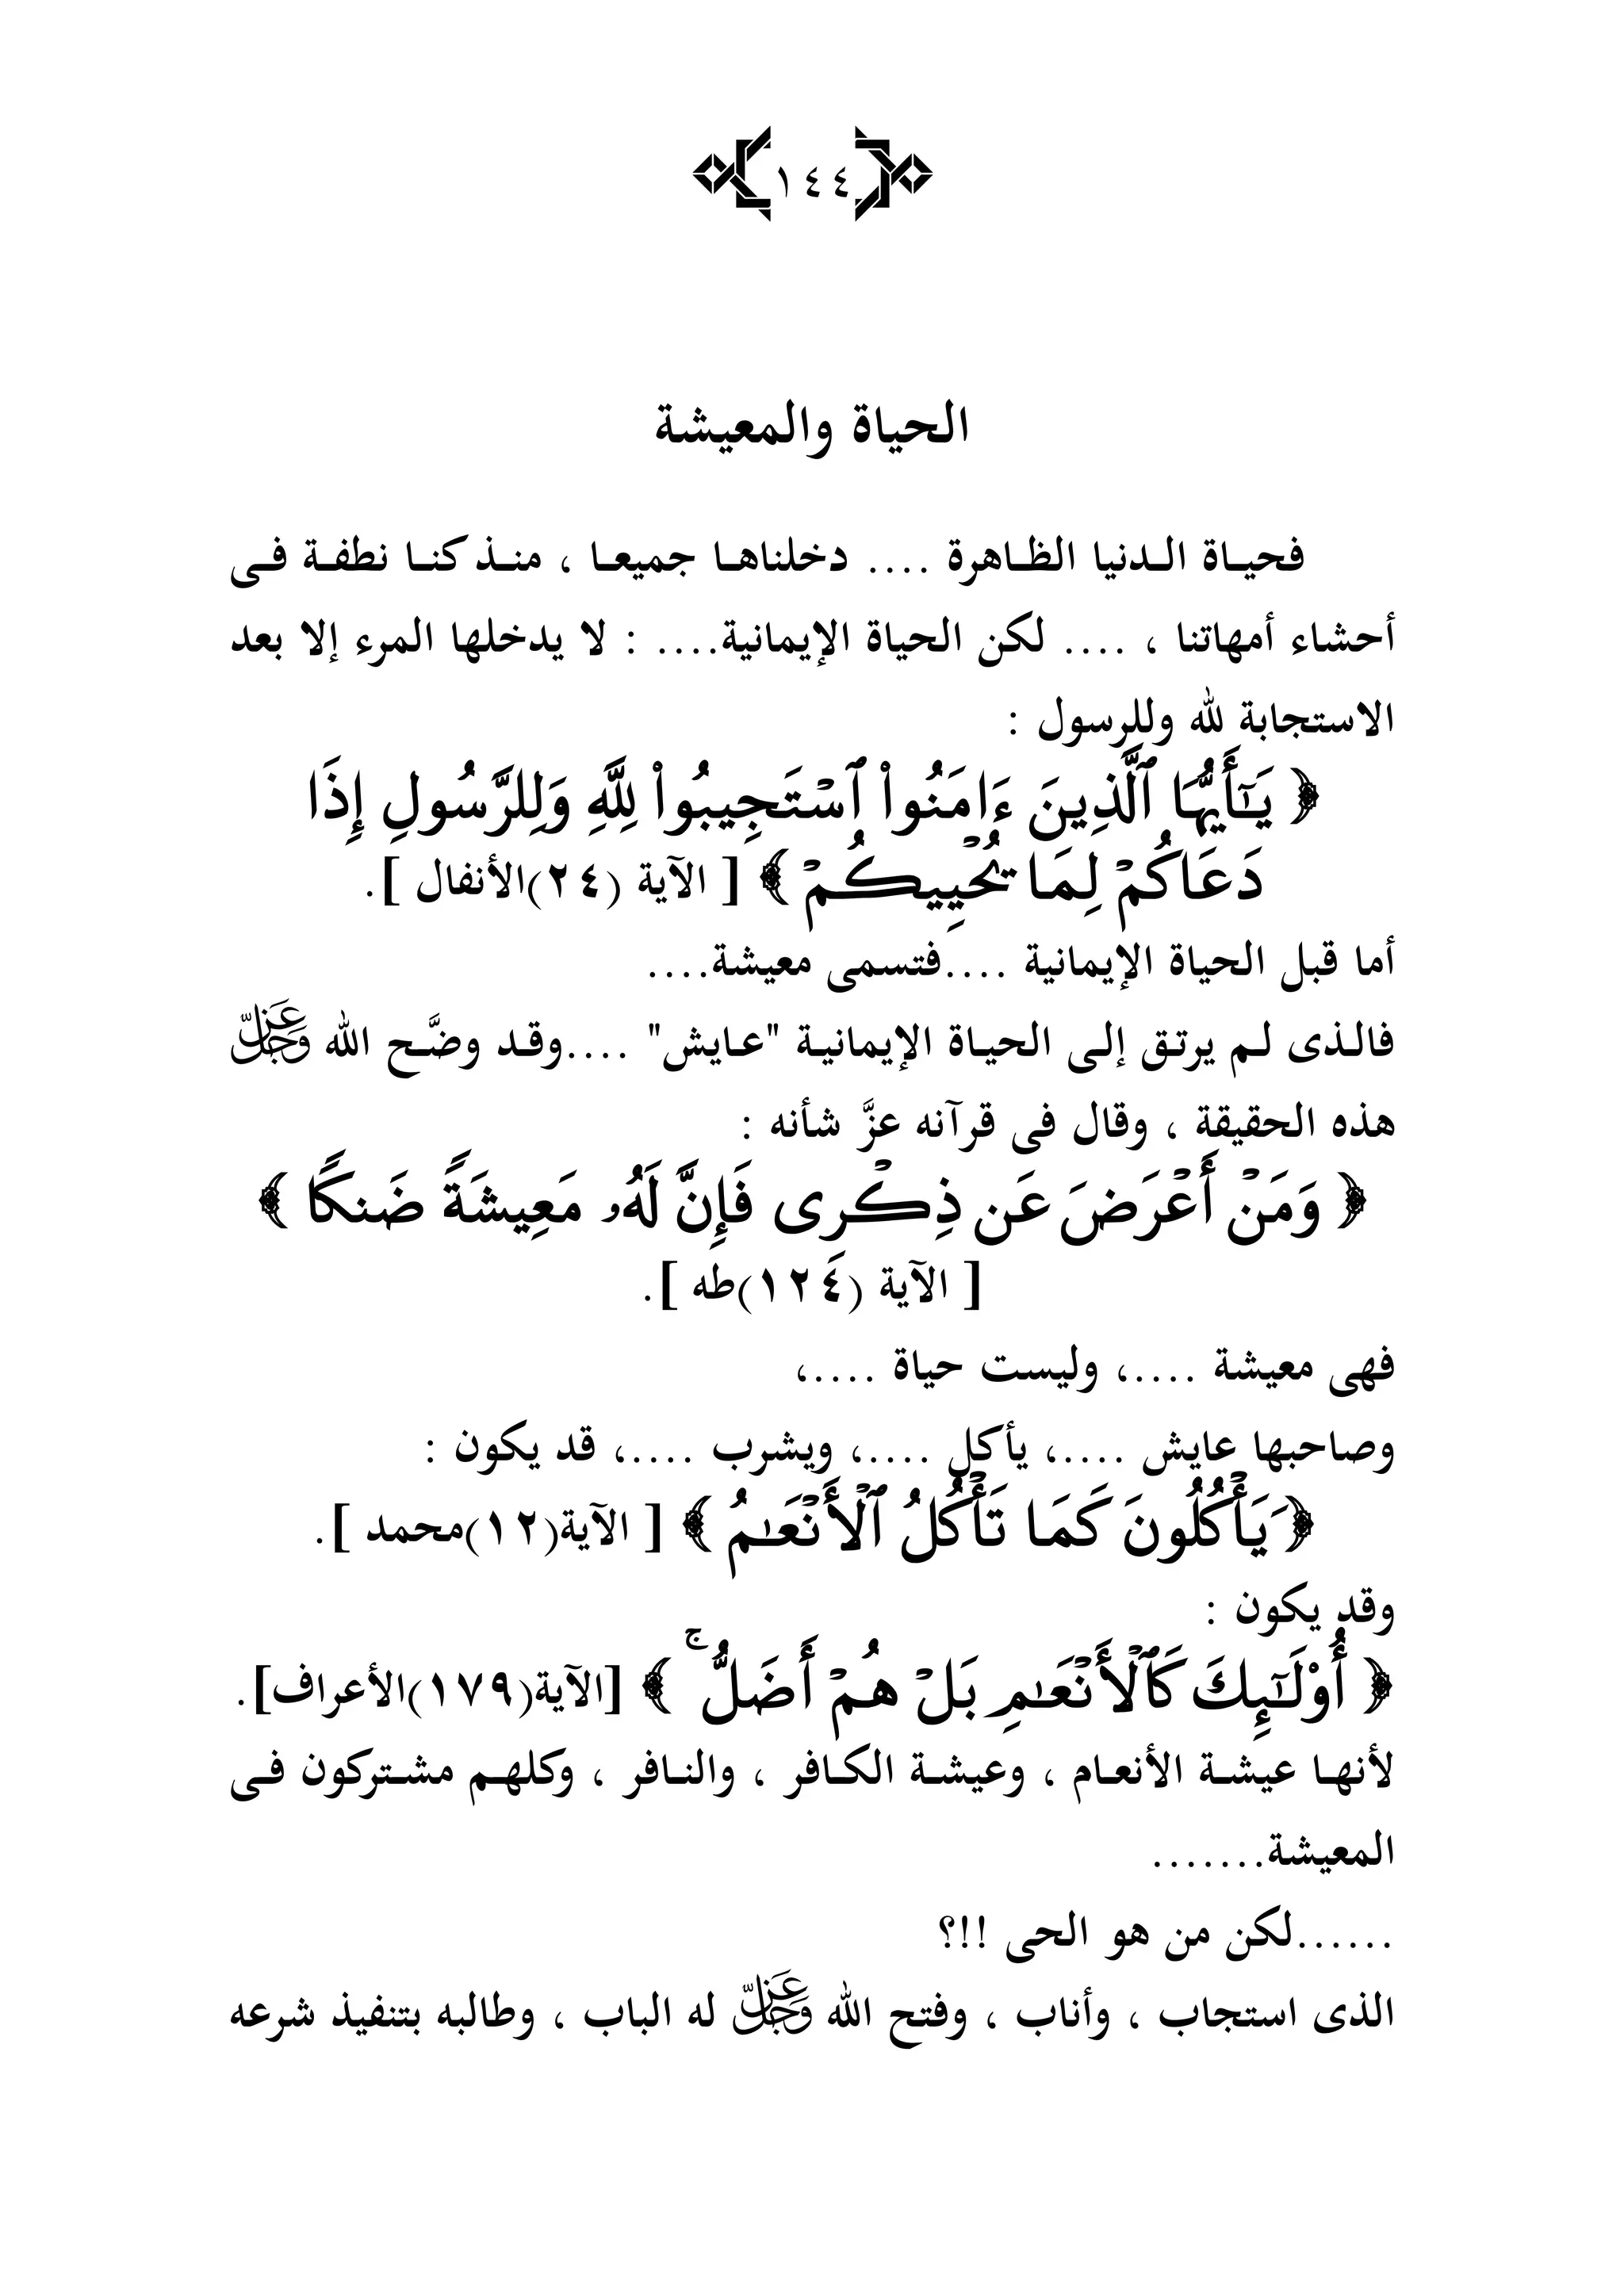 ١٤٤
الحياة والمعيشة
فحيـاة الـدنيا الظـاهرة .... دخلناهـا جميعـا ، منـذ كنـا نطفـة فـى
أحشاء أمهاتنا ، .... لكن الحياة الإيمانية.... : لا يدخلها المرء إلا بعد
الاستجابة لله وللرسول :
﴿ يَـٰٓأَيُّهَا ٱلَّذِينَ ءَامَنُوا۟ ٱسْتَجِيبُوا۟ لِلَّهِ وَلِلرَّسُولِ إِذَا
دَعَاكُمْ لِمَا يُحْيِيكُمْ ﴾ [ الآية (٢٤)الأنفال ].
أما قبل الحياة الإيمانية ....فتسمى معيشة....
فالـذى لـم يرتـق إلـى الحيـاة الإيمانيـة "عـايش" ....وقـد وضَّـح الله عَزَّ وَجَلَّ
هذه الحقيقة ، وقال فى قرآنه عزَّ شأنه :
﴿ وَمَنْ أَعْرَضَ عَن ذِكْرِى فَإِنَّ لَهُۥ مَعِيشَةً ضَنكًا ﴾
[ الآية (١٢٤)طه ].
فهى معيشة ....، وليست حياة ....،
وصاحبها عايش ....، يأكل ....، ويشرب ....، قد يكون :
﴿ َيَأْكُلُونَ كَمَا تَأْكُلُ ٱلْأَنْعَـٰمُ ﴾ [ الآية(١٢)محمد ].
وقد يكون :
﴿ أُو۟لَـٰٓئِكَ كَٱلْأَنْعَـٰمِ بَلْ هُمْ أَضَلُّ ۚ ﴾ [الآية(١٧٩)الأعراف].
لأنهـا عيشـة الأنعـام ، وعيشـة الكـافر ، والنـافر ، وكلهـم مشـتركون فـى
المعيشة.......
......لكن من هو الحى !!؟
الذى استجاب ، وأناب ، وفتح الله عَزَّ وَجَلَّ له الباب ، وطالبه بتنفيذ شرعه